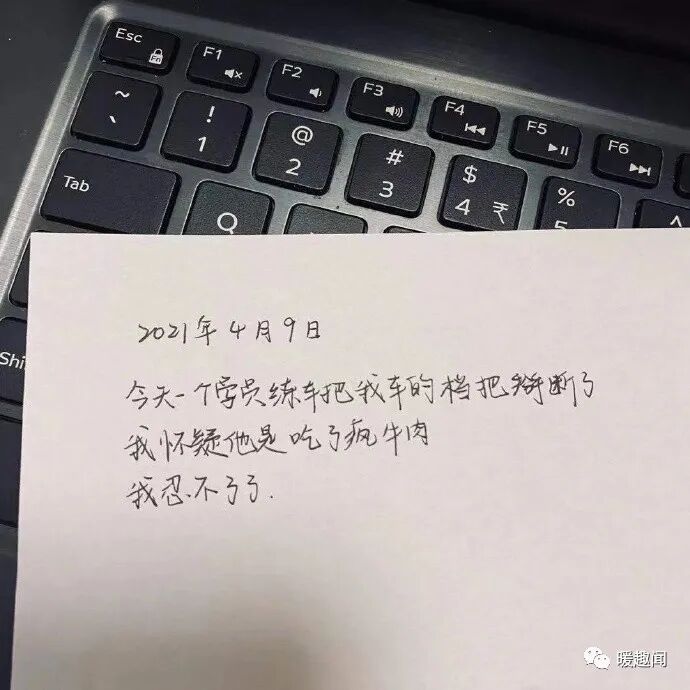 Esc Fn F1 F2 F3 F4 F5 F6
~ ! @ # $ % ^
` 1 2 3 4 ₹ 5
Tab Q
Shi
2021年4月9日
今天一个学员练车把我车的档把掰断了
我怀疑他是吃了疯牛肉
我忍不了了.
暖趣闻